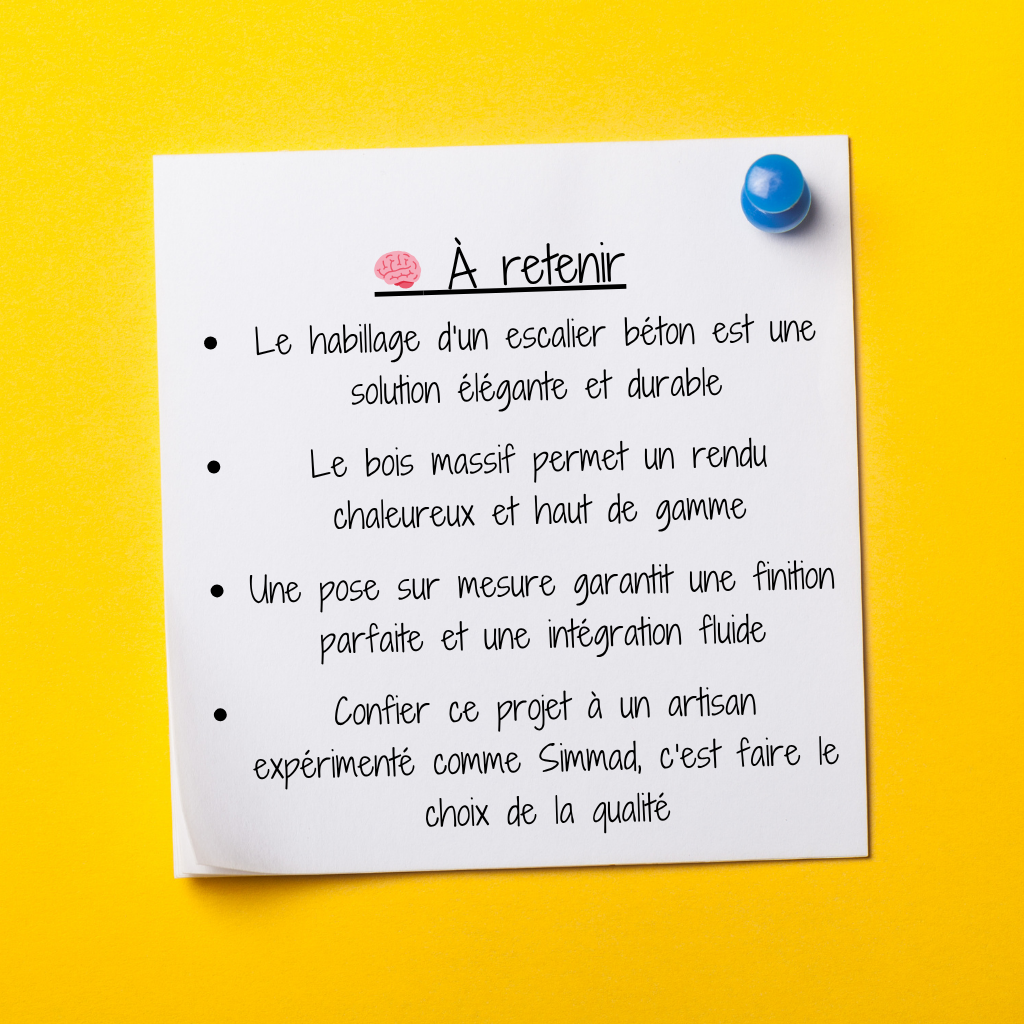 🧠 À retenir
• Le habillage d'un escalier béton est une
solution élégante et durable
• Le bois massif permet un rendu
chaleureux et haut de gamme
• Une pose sur mesure garantit une finition
parfaite et une intégration fluide
• Confier ce projet à un artisan
expérimenté comme Simmad, c'est faire le
choix de la qualité